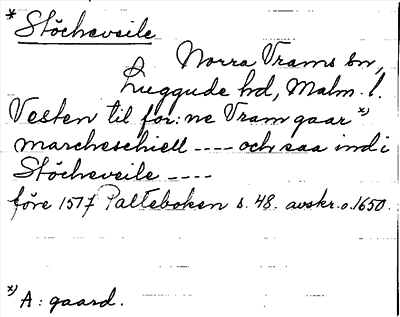 * Stöcheveile
Norra Vrams sn,
Luggude hd, Malm. l.
Vesten til for:ne Vram gaar x)
marcheschiell ---- och saa ind i
Stöcheveile ----
före 1517 Palteboken s. 48. avskr. o. 1650.
x) A: gaard.